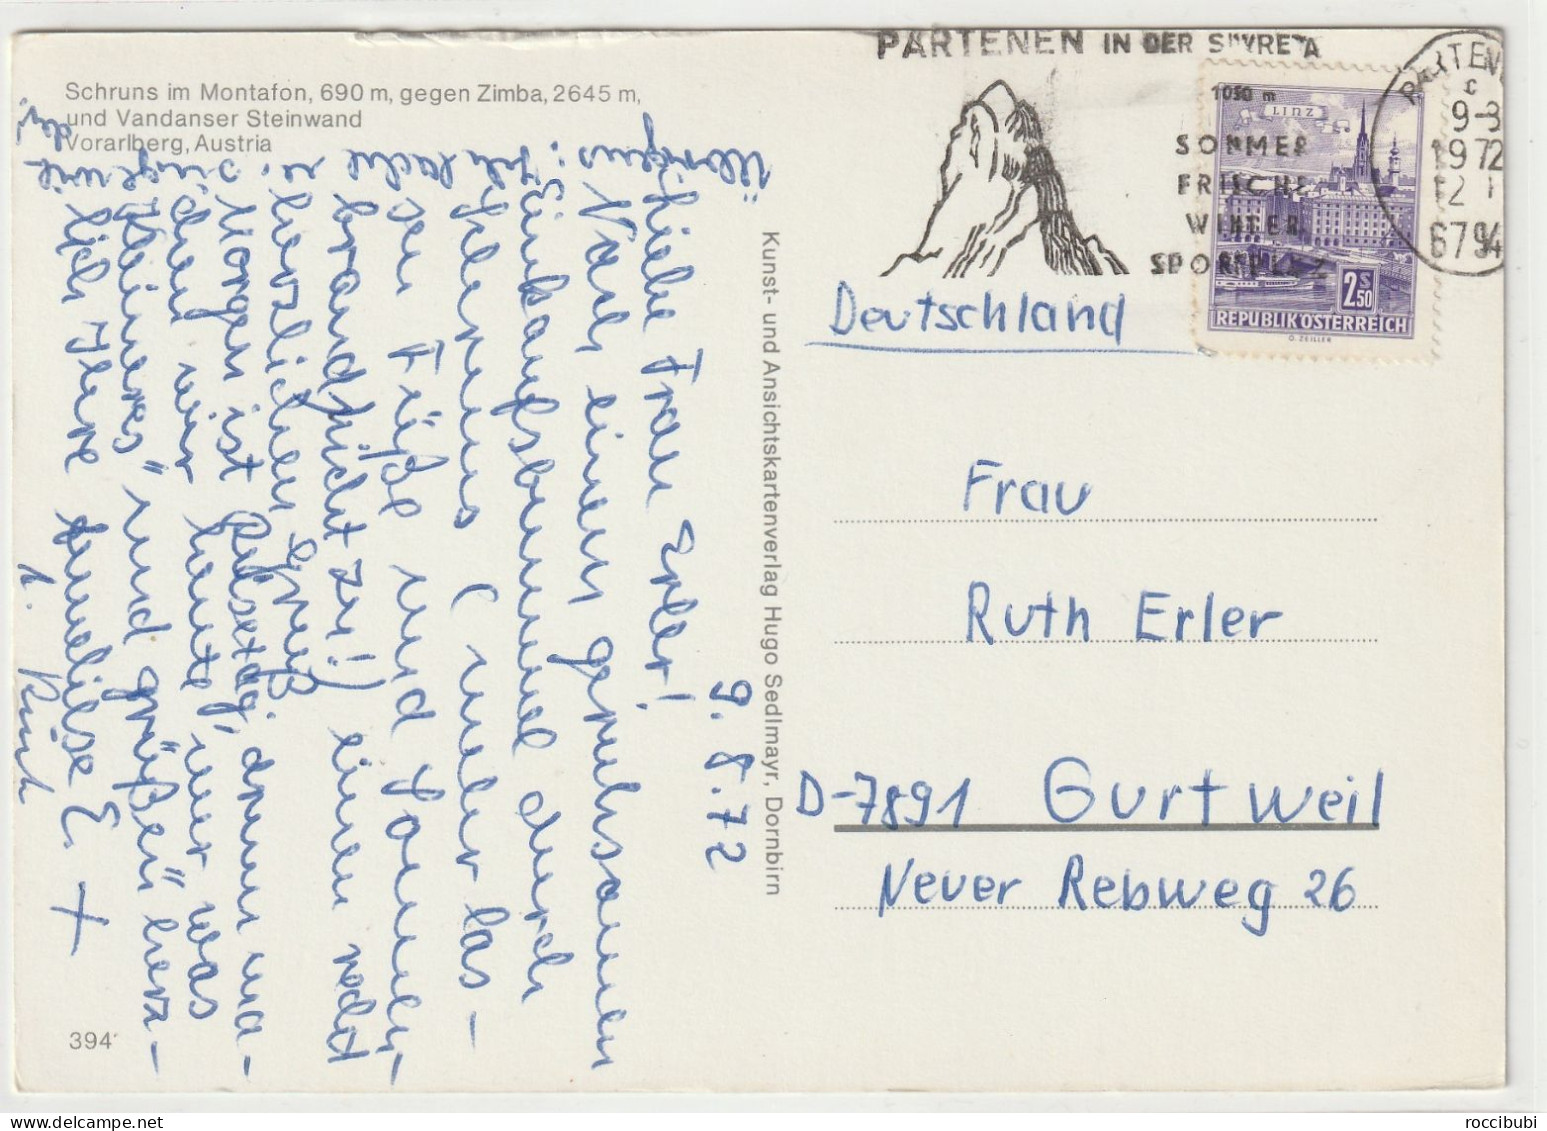 Schruns im Montafon, 690 m, gegen Zimba, 2645 m,
und Vandanser Steinwand
Vorarlberg, Austria
9. 8. 72
Liebe Frau Erler!
Nach einem geruhsamen
Einkaufsbummel durch
Schruns (unter las-
sen Füße und Sonnen-
brand nicht zu!) einen recht
herzlichen Gruß.
Morgen ist Reisetag, drum ma-
chen wir heute nur was
"Kleineres" und grüßen herz-
lich Ihre Anneliese E. +
Übrigens: Ich lache u. singe mit
394
Kunst- und Ansichtskartenverlag Hugo Sedlmayr, Dornbirn
PARTENEN IN DER SILVRETTA
1050 m
SOMMER
FRISCHE
WINTER
SPORTPLATZ
PARTENEN
c
9-8
1972
12
6794
LINZ
2S50
REPUBLIK ÖSTERREICH
O. ZEILLER
Deutschland
Frau
Ruth Erler
D-7891 Gurtweil
Neuer Rebweg 26
roccibubi